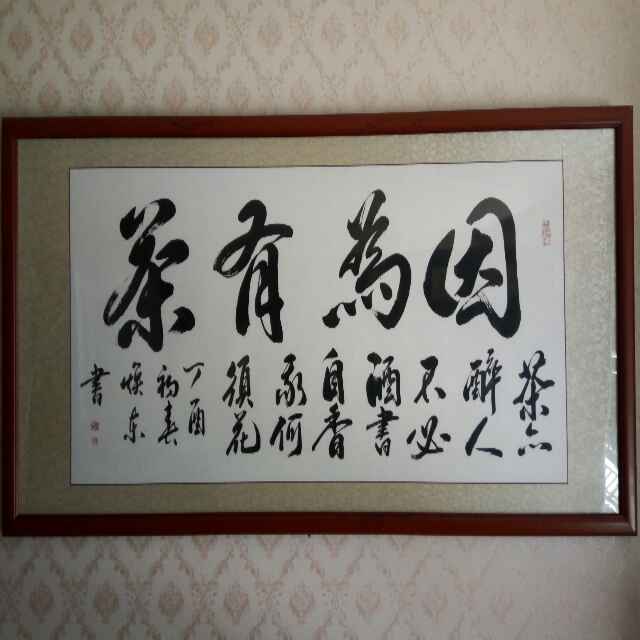 因為有茶
茶亦
醉人
不必
酒書
自香
我何
須花
丁酉
初春
东
書